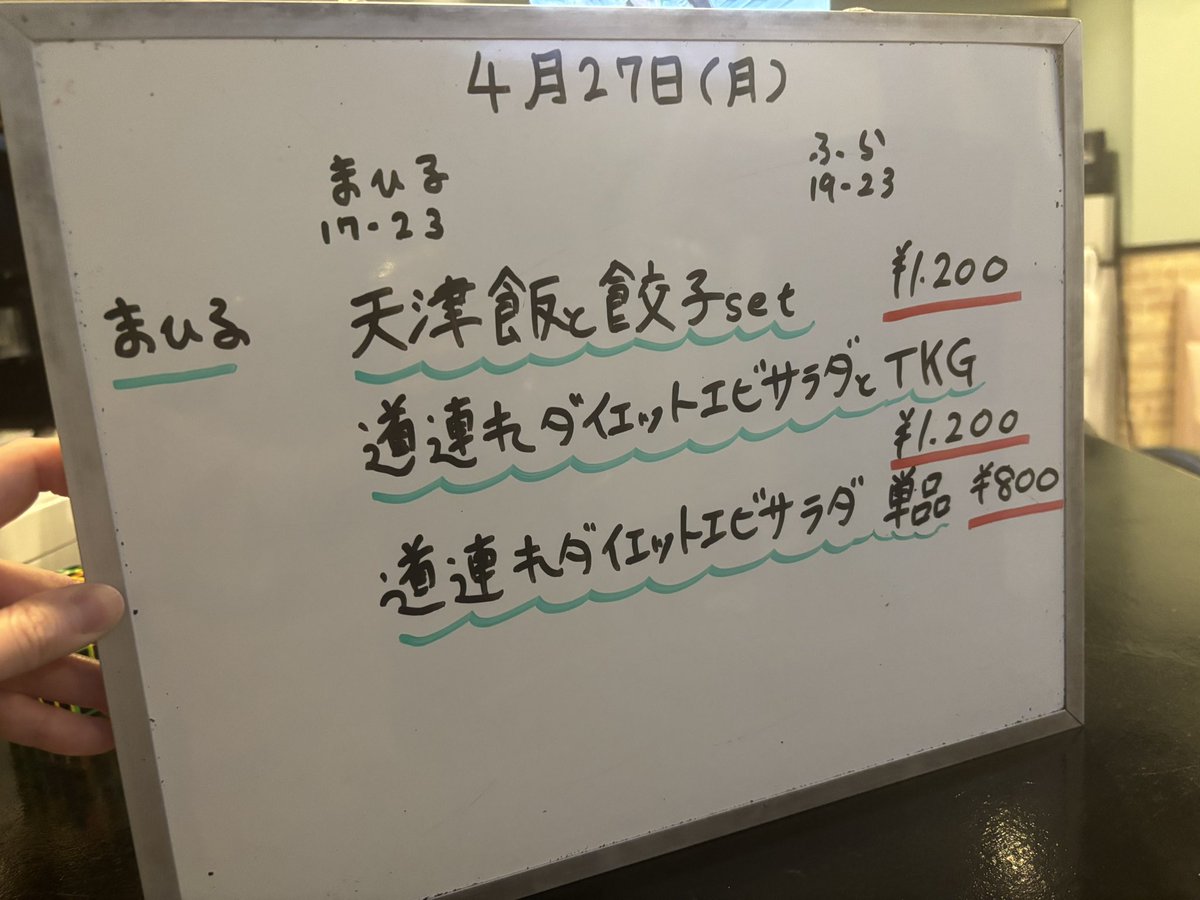 4月27日(月)
まひる
17-23
ふ.ら
19-23
まひる
天津飯と餃子set ¥1.200
道連れダイエットエビサラダとTKG
¥1.200
道連れダイエットエビサラダ 単品 ¥800